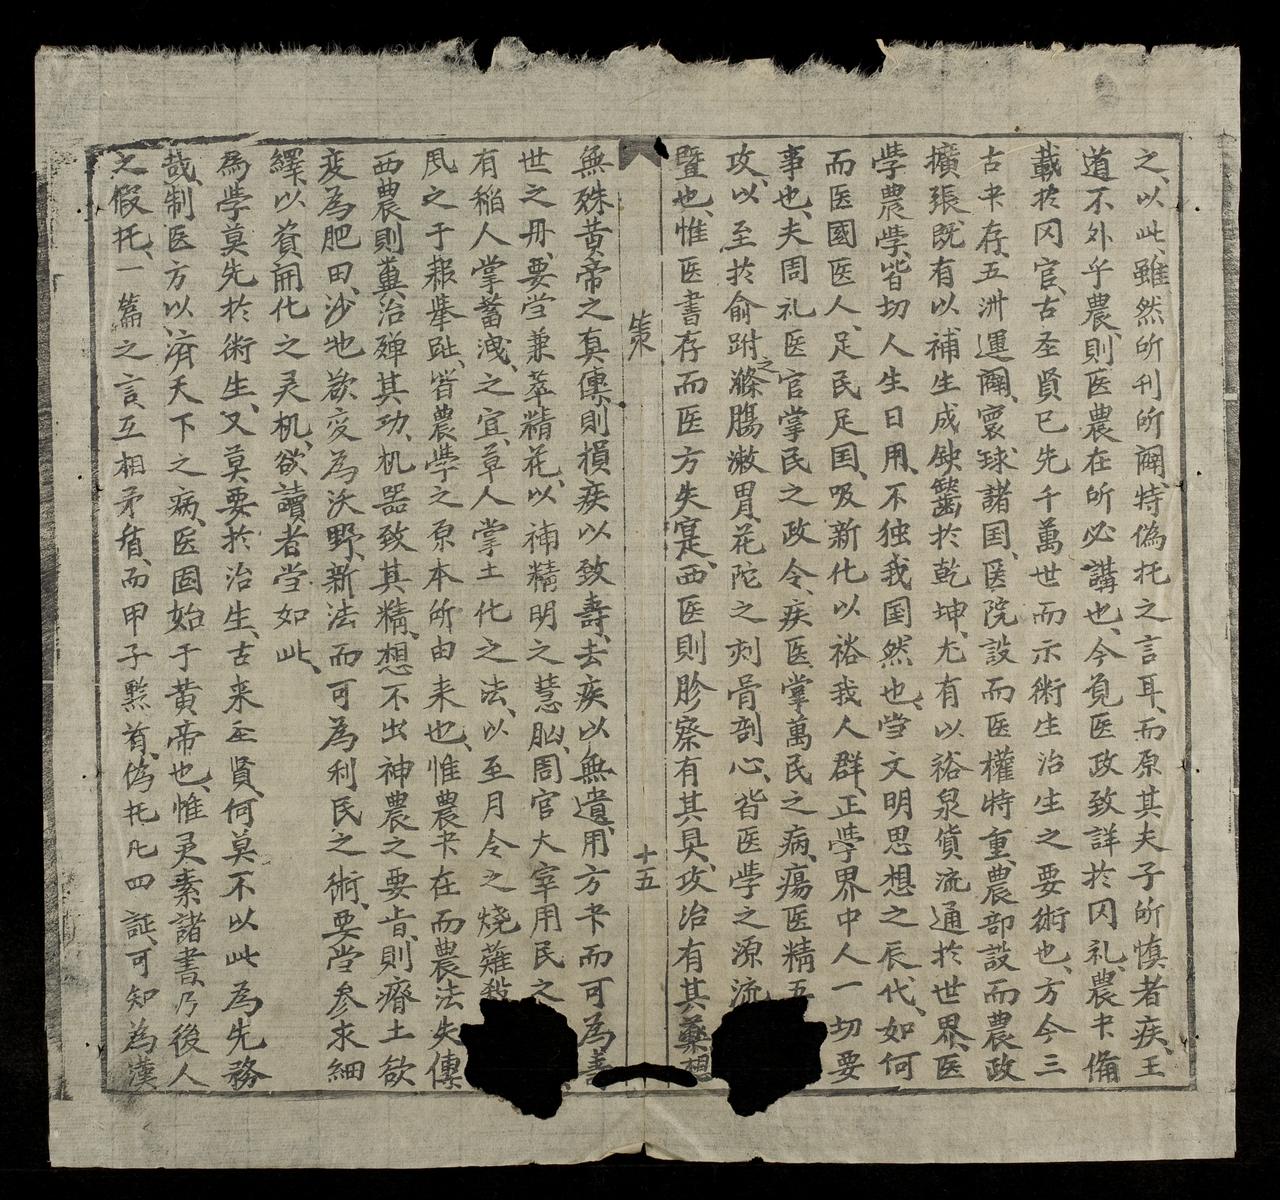 之以此、雖然所刊所闢、特偽托之言耳、而原其夫子所慎者疾、王
道不外乎農、則医農在所必講也、今覔医政致詳於冈礼、農书備
載於冈官、古圣賢已先千萬世而示術生治生之要術也、方今三
古书存、五洲運闢、寰球諸国、医院設而医權特重、農部設而農政
擴張、既有以補生成缺齾於乾坤、尤有以裕泉貨流通於世界、医
學農學、皆切人生日用、不独我国然也、當文明思想之辰代、如何
而医國医人、足民足国、吸新化以裕我人群、正學界中人一切要
事也、夫周礼医官掌民之政令、疾医掌萬民之病、瘍医精五
攻、以至於俞跗之滌膓漱胃、花陀之刻骨剖心、皆医學之源流
暨也、惟医書存而医方失寔、西医則胗察有其具、攻治有其藥、想
策
十五
無殊黄帝之真傳、則損疾以致壽、去疾以無遺、用方书而可為善
世之丹、要當兼萃精花、以補精明之慧𦛨、周官大宰用民之
有稲人掌蓄洩之宜、草人掌土化之法、以至月令之燒薙殺
風之于耜舉趾、皆農學之原本所由来也、惟農书在而農法失傳
西農則糞治殫其功、机器致其精、想不出神農之要旨、則瘠土欲
变為肥田、沙地欲变為沃野、新法而可為利民之術、要當参求細
繹、以資開化之灵机、欲讀者當如此、
為學莫先於術生、又莫要於治生、古来圣賢、何莫不以此為先務
哉、制医方以済天下之病、医固始于黄帝也、惟灵素諸書、乃後人
之假托、一篇之言、互相矛盾、而甲子黙首、偽托凡四証、可知為漢